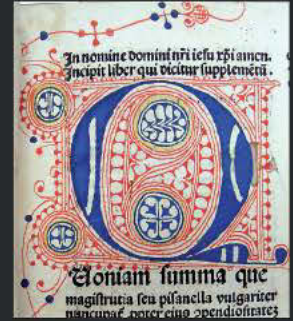 In nomine domini nr̄i iesu xp̄i amen.
Incipit liber qui dicitur supplementū.
Q
Uoniam summa que
magistrutia seu pisanella vulgariter
nuncupat᷑ propter eius ↄpendiositatez